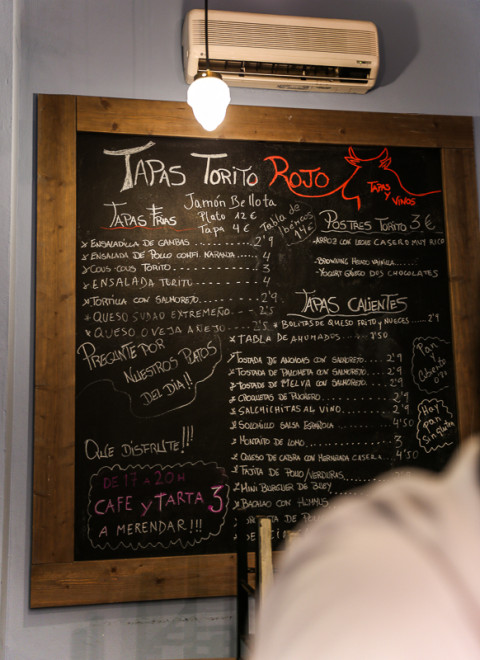 TAPAS TORITO ROJO
TAPAS Y VINOS
Jamón Bellota
Plato 12 €
Tapa 4 €
Tabla de ibéricos 14 €
TAPAS FRIAS
ENSALADILLA DE GAMBAS 2'9
ENSALADA DE POLLO CONFI. NARANJA 4
COUS-COUS TORITO 3
ENSALADA TORITO 4
TORTILLA CON SALMOREJO 2'9
QUESO SUDAO EXTREMEÑO 2'5
QUESO OVEJA AÑEJO 2'5
PREGUNTE POR
NUESTROS PLATOS
DEL DIA!!
QUE DISFRUTE!!!
DE 17 A 20 H
CAFE y TARTA 3
A MERENDAR!!!
POSTRES TORITO 3 €
ARROZ CON LECHE CASERO MUY RICO
BROWNIE HELADO VAINILLA
YOGURT GRIEGO DOS CHOCOLATES
TAPAS CALIENTES
BOLITAS DE QUESO FRITO y NUECES 2'9
TABLA DE AHUMADOS
TOSTADA DE ANCHOAS CON SALMOREJO 2'9
TOSTADA DE PALOMETA CON SALMOREJO 2'9
TOSTADO DE MELVA CON SALMOREJO 2'9
CROQUETAS DE PUCHERO 2'9
SALCHICHITAS AL VINO 2'9
SOLOMILLO SALSA ESPAÑOLA 4'50
MONTAITO DE LOMO 3
QUESO DE CABRA CON MERMELADA CASERA 4'50
TAJITA DE POLLO/VERDURAS
MINI BURGUER DE BUEY
BACALAO CON HUMMUS
Pan
Hay pan sin gluten